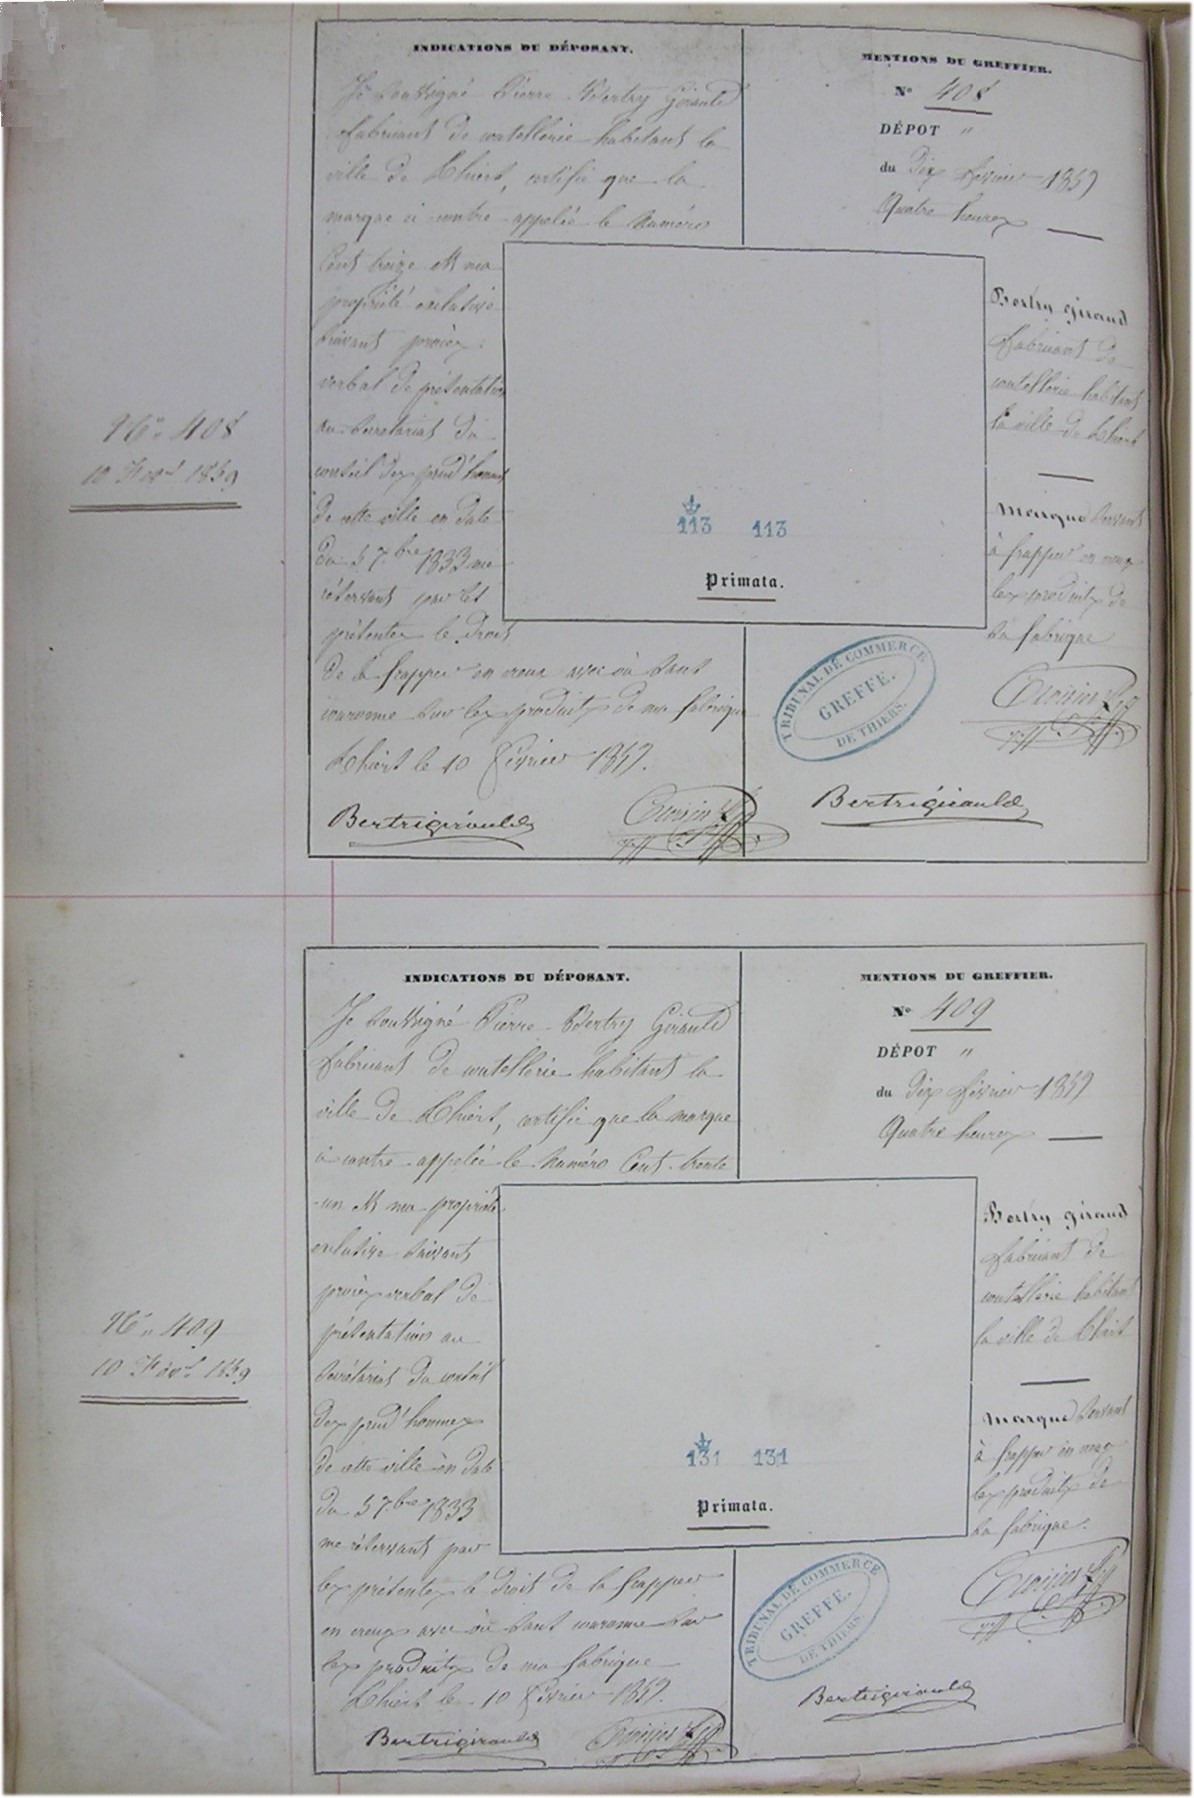 N° 408
10 Fév. 1859
INDICATIONS DU DÉPOSANT.
Je soussigné Pierre Bertry Girauld
fabricant de coutellerie habitant la
ville de Thiers, certifie que la
marque ci contre appelée le numéro
Cent treize est ma
propriété exclusive
suivant procès
verbal de présentation
au secrétariat du
conseil des prud'hommes
de cette ville en date
du 5 7.bre 1833 me
réservant par les
présentes le droit
de la frapper en creux avec où sans
couronne sur les produits de ma fabrique
Thiers le 10 février 1859.
Bertrigirauld
MENTIONS DU GREFFIER.
N° 408
DÉPOT "
du dix février 1859
Quatre heures
Bertry giraud
fabricant de
coutellerie habitant
la ville de Thiers
Marque servant
à frapper en creux
les produits de
sa fabrique
113 113
Primata.
TRIBUNAL DE COMMERCE
GREFFE.
DE THIERS.
Bertrigirauld
N° 409
10 Fév. 1859
INDICATIONS DU DÉPOSANT.
Je soussigné Pierre Bertry Girauld
fabricant de coutellerie habitant la
ville de Thiers, certifie que la marque
ci contre appelée le numéro Cent trente
un est ma propriété
exclusive suivant
procès verbal de
présentation au
secrétariat du conseil
des prud'hommes
de cette ville en date
du 5 7.bre 1833
me réservant par
les présentes le droit de la frapper
en creux avec où sans couronne sur
les produits de ma fabrique
Thiers le 10 février 1859.
Bertrigirauld
MENTIONS DU GREFFIER.
N° 409
DÉPOT "
du dix février 1859
Quatre heures
Bertry giraud
fabricant de
coutellerie habitant
la ville de Thiers
Marque servant
à frapper en creux
les produits de
sa fabrique.
131 131
Primata.
TRIBUNAL DE COMMERCE
GREFFE.
DE THIERS.
Bertrigirauld